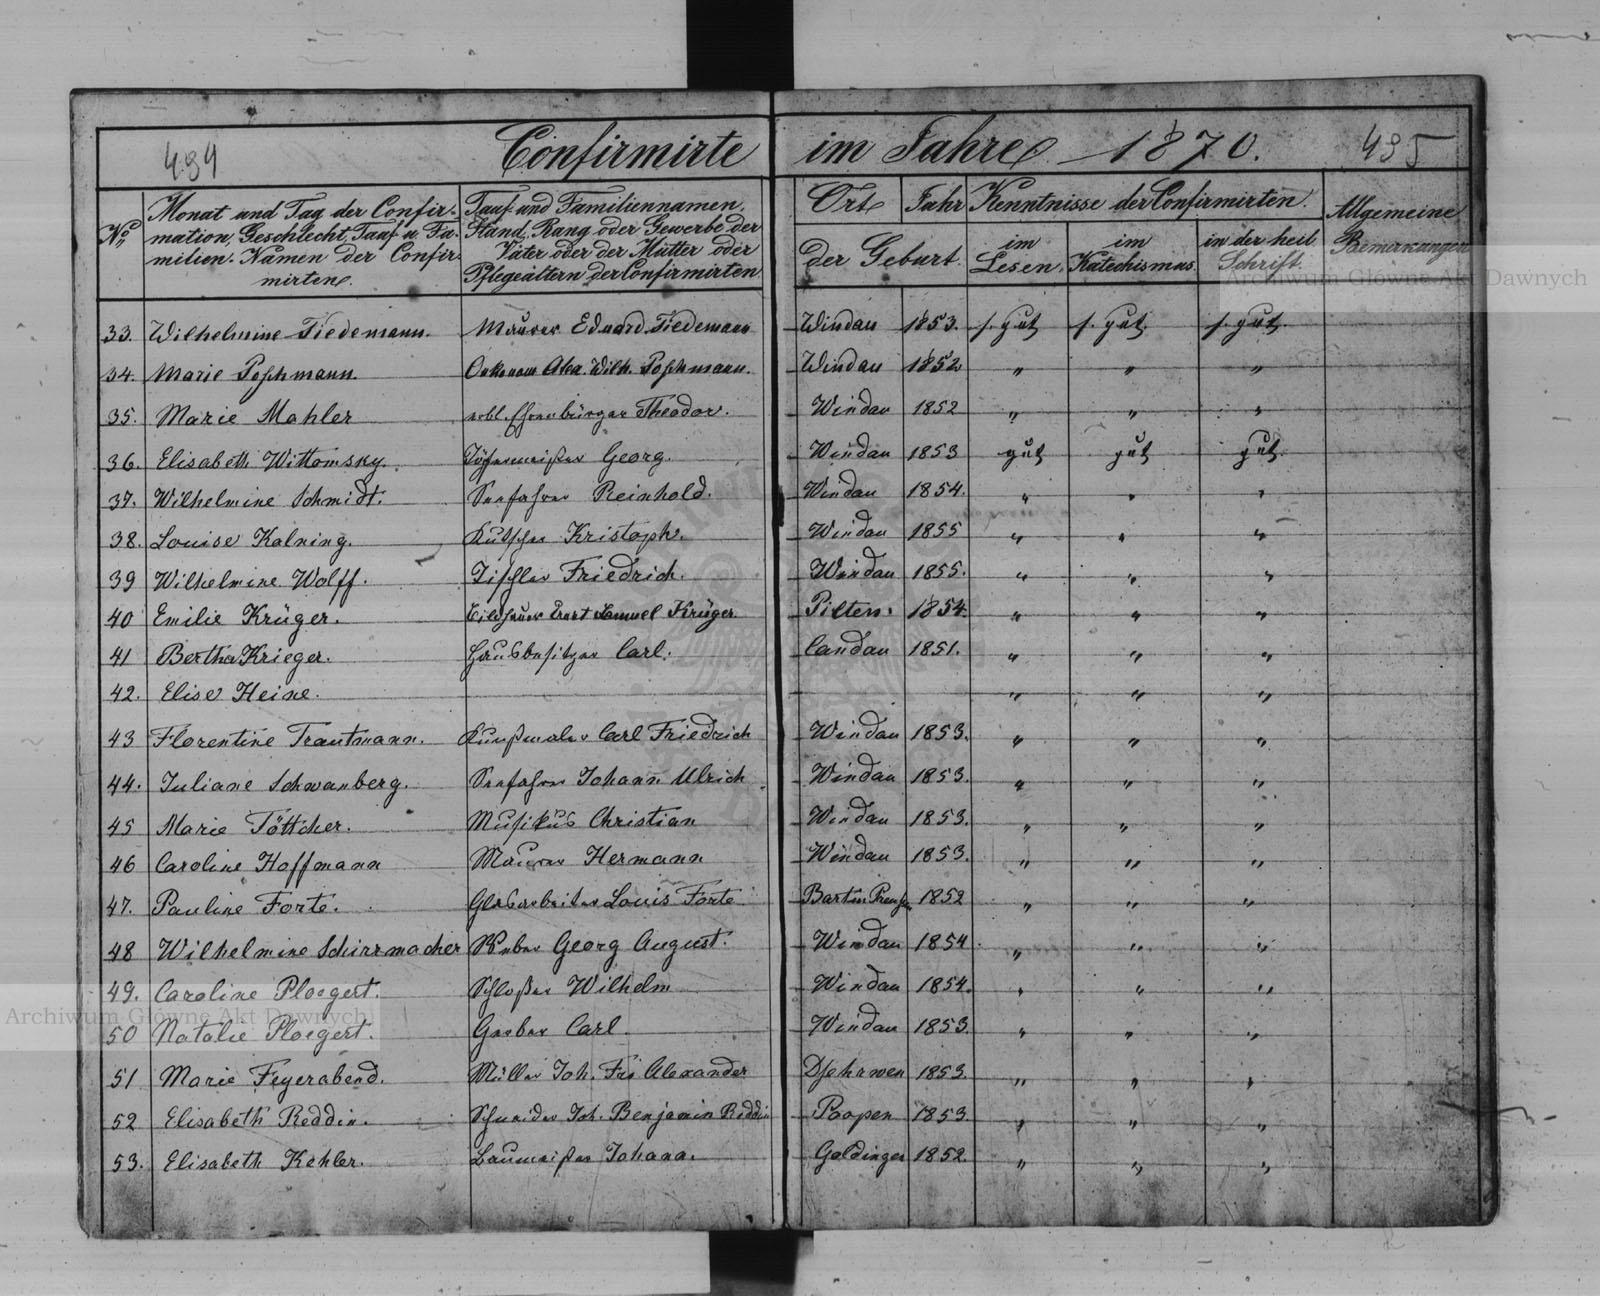 494 Confirmirte im Jahre 1870. 495
No Monat und Tag der Confir-
mation, Geschlecht, Tauf u. Fa-
milien-Namen der Confir-
mirten.
Tauf und Familiennamen,
Stand, Rang oder Gewerbe der
Väter oder der Mütter oder
Pflegeältern der Confirmirten
Ort der Geburt.
Jahr
Kenntnisse der Confirmirten.
im Lesen.
im Katechismus.
in der heil. Schrift.
Allgemeine
Bemerkungen
33. Wilhelmine Tiedemann. Maurer Eduard Tiedemann Windau 1853. s. gut s. gut. s. gut.
34. Marie Poschmann. Oekonom Alex. Wilh. Poschmann. Windau 1852 " " "
35. Marie Mahler erbl. Ehrenbürger Theodor. Windau 1852 " " "
36. Elisabeth Wittomsky. Töpfermeister Georg. Windau 1853 gut gut gut.
37. Wilhelmine Schmidt. Seefahrer Reinhold. Windau 1854. " " "
38. Louise Kalning. Kutscher Kristoph. Windau 1855 " " "
39 Wilhelmine Wolff. Tischler Friedrich. Windau 1855. " " "
40 Emilie Krüger. Bildhauer Ernst Samuel Krüger. Pilten. 1854. " " "
41 Bertha Krieger. Hausbesitzer Carl. Candau 1851. " " "
42. Elise Heine. " " "
43 Florentine Trautmann. Kunstmaler Carl Friedrich Windau 1853. " " "
44. Juliane Schwanberg. Seefahrer Johann Ulrich Windau 1853. " " "
45 Marie Töttcher. Musikus Christian Windau 1853. " " "
46 Caroline Hoffmann Maurer Hermann Windau 1853. " " "
47. Pauline Forte. Glasarbeiter Louis Forte Bart in Preußen 1852 " " "
48 Wilhelmine Schirrmacher Weber Georg August. Windau 1854 " " "
49. Caroline Ploegert. Schloßer Wilhelm Windau 1854. " " "
50 Natalie Ploegert. Gerber Carl. Windau 1853. " " "
51 Marie Feyerabend. Müller Joh. Fri Alexander Dsehrwen 1853. " " "
52 Elisabeth Reddin. Schneider Joh. Benjamin Reddin Popen 1853. " " "
53. Elisabeth Kehler. Baumeister Johann. Goldingen 1852. " " "
Archiwum Główne Akt Dawnych
Archiwum Główne Akt Dawnych